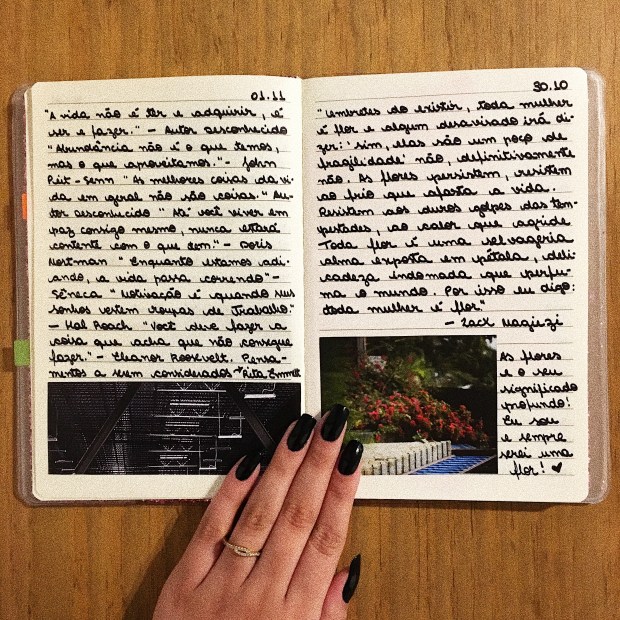 01.11
"A vida não é ter e adquirir, é
ser e fazer." - Autor Desconhecido
"Abundância não é o que temos,
mas o que aproveitamos." - John
Piit-Senn "As melhores coisas da vi-
da em geral não são coisas." Au-
tor desconhecido " Até você viver em
paz consigo mesmo, nunca estará
contente com o que tem." - Doris
Mortman " Enquanto estamos adi-
ando, a vida passa correndo" -
Sêneca " Motivação é quando seus
sonhos vestem roupas de Trabalho."
- Hal Roach "Você deve fazer a
coisa que acha que não consegue
fazer." - Eleanor Roosevelt. Pensa-
mentos a serem considerados → Rita Emmett
30.10
"Lembretes do existir, toda mulher
é flor e algum desavisado irá di-
zer: 'sim, elas são um poço de
fragilidade' não, definitivamente
não. As flores persistem, resistem
ao frio que afasta a vida.
Resistem aos duros golpes das tem-
pestades, ao calor que agride
Toda flor é uma selvageria
alma exposta em pétala, deli-
cadeza indomada que perfu-
ma o mundo. Por isso eu digo:
toda mulher é flor."
- Zack Magiezi
As flores
e o seu
significado
profundo!
Eu sou
e sempre
serei uma
flor! ♥